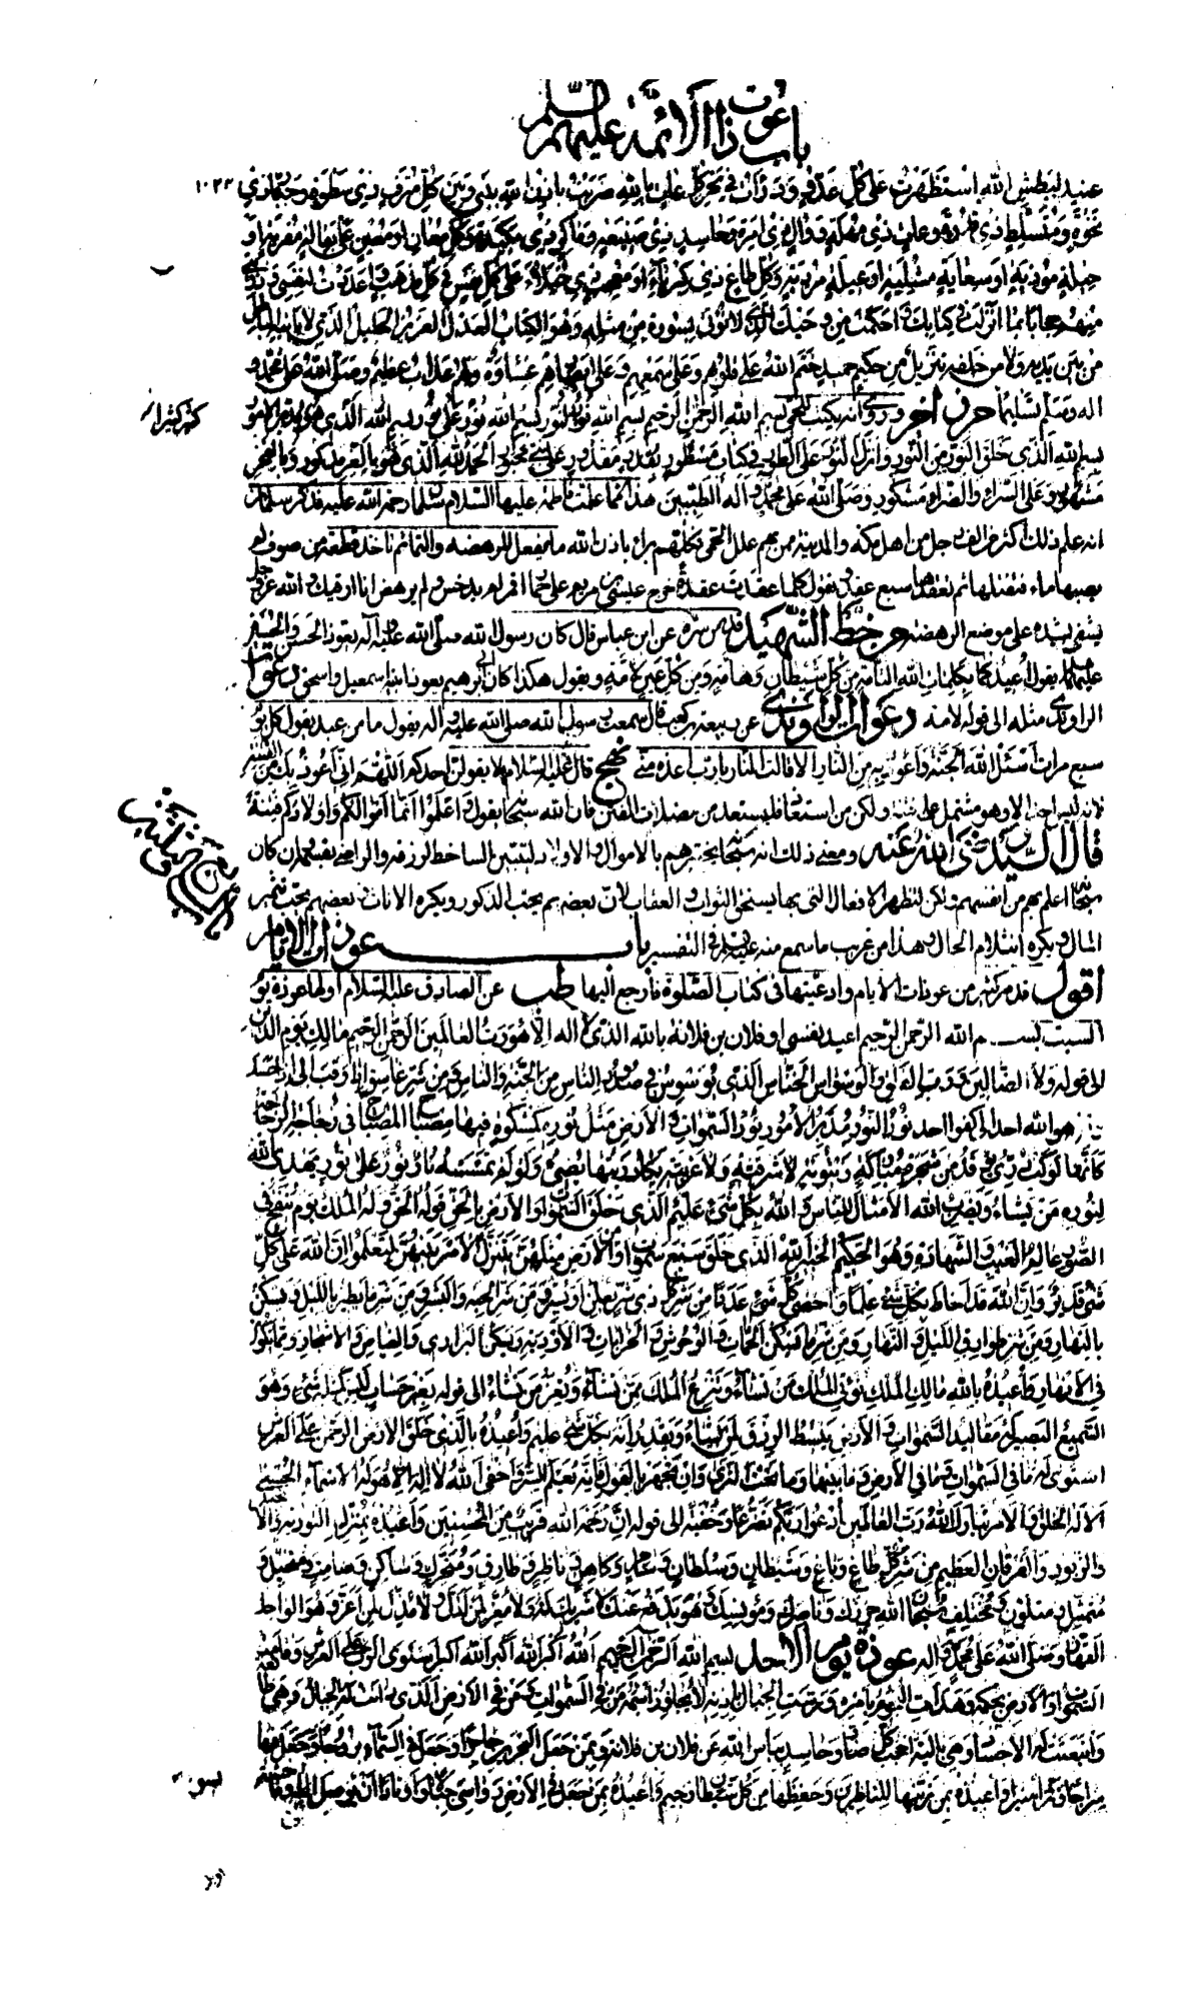 باب عوذات الأئمة عليهم السلام
عنيد لبطش الله استظهرت على كل عدو ودرأت في نحر كل عات بالله ضربت باذن الله بيني وبين كل مترف ذي سطوة وجبار ذي ١٠٢٣
نخوة ومتسلط ذي قدرة وعلى ذي مهلة ووال ذي امرة وحاسد ذي صنيعة وماكر ذي مكيدة وكل معان او معين
حيلة موذية او سعاية مشلية او عيلة مردية وكل طاغ ذي كبرياء او معجب ذي خيلاء على كل نفس في كل مذهب واعددت لنفسي
منهم حجابا بما انزلت في كتابك واحكمت من وحيك الذي لا توتى بسورة من مثله وهو الكتاب العدل العزيز الجليل الذي لا ياتيه الباطل
من بين يديه ولا من خلفه تنزيل من حكيم حميد ختم الله على قلوبهم وعلى سمعهم وعلى ابصارهم غشاوة ولهم عذاب عظيم وصلى الله على محمد و
اله وسلم تسليما حرز اخر وروي انه يكتب للحمى بسم الله الرحمن الرحيم بسم الله نور النور بسم الله نور على نور بسم الله الذي هو مدبر الامور
بسم الله الذي خلق النور من النور وانزل النور على الطور في كتاب مسطور بقدر مقدور على نبي محبور الحمد لله الذي هو بالعز مذكور وبالفخر
مشهور وعلى السراء والضراء مشكور وصلى الله على محمد واله الطيبين هذا مما علمت فاطمة عليها السلام سلمان رحمة الله عليه فذكر سلمان
انه علم ذلك اكثر من الف رجل من اهل مكة والمدينة ممن بهم علل الحمى فكلهم برا باذن الله ما يفعل للرهصة والتمائم ناخذ قطعة من صوف لم
يصبها ماء فتفتلها ثم تعقدها سبع عقد وتقول كلما عقدت عقدة خرج عيسى بن مريم على حمار اقمر لم يدخس ولم يرهص انا ارقيك والله عز وجل
يشفيك يشده على موضع الرهصة من خط الشهيد قدس سره عن ابن عباس قال كان رسول الله صلى الله عليه واله يعوذ الحسن والحسين
عليهما السلام يقول اعيذكما بكلمات الله التامة من كل شيطان وهامة ومن كل عين لامة ويقول هكذا كان ابراهيم يعوذ ابنيه اسمعيل واسحق دعوات
الراوندي مثله الى قوله لامة دعوات الراوندي عن ربيعة بن كعب قال سمعت رسول الله صلى الله عليه واله يقول ما من عبد يقول كل يوم
سبع مرات اسئل الله الجنة واعوذ به من النار الا قالت النار يا رب اعذه مني نهج قال عليه السلام لا يقولن احدكم اللهم اني اعوذ بك من الفتنة
لانه ليس احد الا وهو مشتمل على فتنة ولكن من استعاذ فليستعذ من مضلات الفتن فان الله سبحانه يقول واعلموا انما اموالكم واولادكم فتنة
قال السيد رضي الله عنه ومعنى ذلك انه سبحانه يختبرهم بالاموال والاولاد ليتبين الساخط لرزقه والراضي بقسمه وان كان
سبحانه اعلم بهم من انفسهم ولكن لتظهر الافعال التي بها يستحق الثواب والعقاب لان بعضهم يحب الذكور ويكره الاناث وبعضهم يحب تثمير
المال ويكره انثلام الحال وهذا من غريب ما سمع منه عليه السلام في التفسير باب عوذات الايام
اقول قد مر كثير من عوذات الايام وادعيتها في كتاب الصلوة فارجع اليها طب عن الصادق عليه السلام اولها عوذة يوم
السبت بسم الله الرحمن الرحيم اعيذ نفسي او فلان بن فلانة بالله الذي لا اله الا هو رب العالمين الرحمن الرحيم مالك يوم الدين
الى قوله ولا الضالين ورب الفلق والوسواس الخناس الذي يوسوس في صدور الناس من الجنة والناس ومن شر غاسق اذا وقب الى اذا حسد
هو الله احد الى كفوا احد نور النور مدبر الامور نور السموات والارض مثل نوره كمشكوة فيها مصباح المصباح في زجاجة الزجاجة
كانها كوكب دري يوقد من شجرة مباركة زيتونة لا شرقية ولا غربية يكاد زيتها يضيء ولو لم تمسسه نار نور على نور يهدي الله
لنوره من يشاء ويضرب الله الامثال للناس والله بكل شيء عليم الذي خلق السموات والارض بالحق قوله الحق وله الملك يوم ينفخ في
الصور عالم الغيب والشهادة وهو الحكيم الخبير الله الذي خلق سبع سموات ومن الارض مثلهن يتنزل الامر بينهن لتعلموا ان الله على كل
شيء قدير وان الله قد احاط بكل شيء علما واحصى كل شيء عددا من شر كل ذي شر يعلن او يسر ومن شر الجنة والبشر ومن شر ما يطير بالليل ويسكن
بالنهار ومن شر طوارق الليل والنهار ومن شر ما يسكن الحمامات والوحوش والخرابات والاودية ويسكن البراري والغياض والاشجار ومما يكون
في الانهار واعيذه بالله مالك الملك توتي الملك من تشاء وتنزع الملك ممن تشاء وتعز من تشاء الى قوله بغير حساب ليس كمثله شيء وهو
السميع البصير له مقاليد السموات والارض يبسط الرزق لمن يشاء ويقدر انه بكل شيء عليم واعيذه بالذي خلق الارض الرحمن على العرش
استوى له ما في السموات وما في الارض وما بينهما وما تحت الثرى وان تجهر بالقول فانه يعلم السر واخفى الله لا اله الا هو له الاسماء الحسنى
الا له الخلق والامر تبارك الله رب العالمين ادعوا ربكم تضرعا وخفية الى قوله ان رحمة الله قريب من المحسنين واعيذه بمنزل التورية والانجيل
والزبور والفرقان العظيم من شر كل طاغ وباغ وشيطان وسلطان وساحر وكاهن وناظر وطارق ومتحرك وساكن وصامت ومتخيل و
متمثل ومتلون ومختلف سبحان الله حرزك وناصرك ومونسك وهو يدفع عنك لا شريك له ولا معز لمن اذل ولا مذل لمن اعز وهو الواحد
القهار وصلى الله على محمد واله عوذة يوم الاحد بسم الله الرحمن الرحيم الله اكبر الله اكبر الله اكبر استوى الرب على العرش وقامت
السموات والارض بحكمته وهدأت النجوم بامره ورست الجبال باذنه لا يجاوز اسمه من في السموات ومن في الارض الذي دانت له الجبال وهي طائعة
وانبعثت له الاجساد وهي بالية احجب كل ضار وحاسد بباس الله عن فلان بن فلانة وبمن جعل البحرين حاجزا وجعل في السماء بروجا وجعل فيها
سراجا وقمرا منيرا واعيذه بمن زينها للناظرين وحفظها من كل شيطان رجيم واعيذه بمن جعل في الارض رواسي جبالا واوتادا ان يوصل اليه